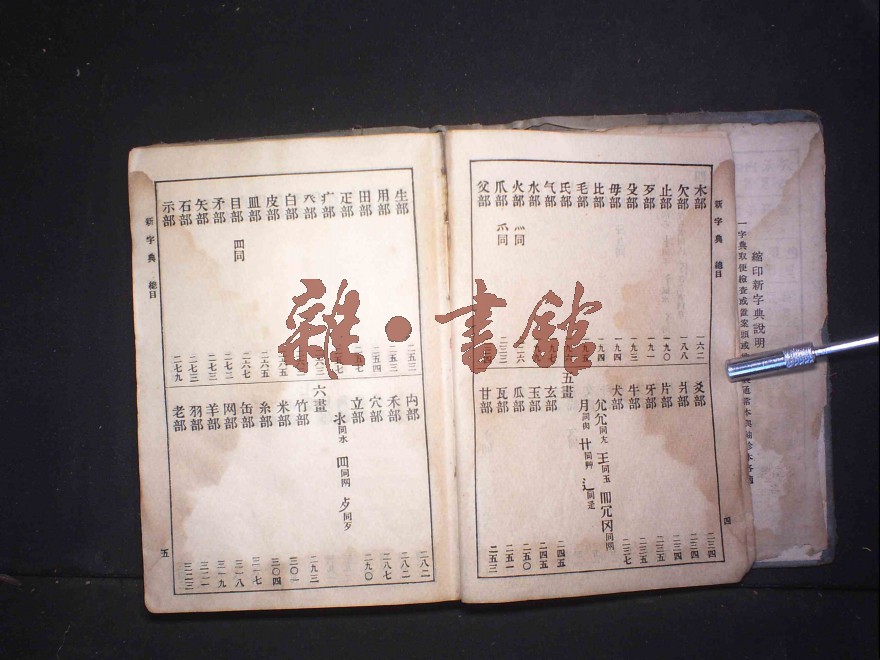 縮印新字典說明
一字典取便檢查或置案頭或
新字典 總目
木部 一六二
欠部 一八八
止部 一九〇
歹部 一九一
殳部 一九三
毋部 一九四
比部 一九四
毛部
氏部
气部
水部
火部 灬同 二一六
爪部 爫同 二三三
父部
爻部 二三四
爿部 二三四
片部 二三四
牙部 二三五
牛部 二三五
犬部 二三七
尣尢同尢 王同玉 罒冗冈同网
月同肉 艹同艸 辶同辵
五畫
玄部 二四五
玉部 二四五
瓜部 二五〇
瓦部 二五一
甘部 二五三
四
生部 二五三
用部 二五三
田部 二五四
疋部
疒部
癶部
白部
皮部
皿部 二六五
目部 罒同 二六七
矛部 二七二
矢部 二七三
石部 二七三
示部 二七九
禸部 二八二
禾部 二八二
穴部 二八七
立部 二九〇
氺同水 罒同网 歺同歹
六畫
竹部 二九三
米部 三〇一
糸部 三〇四
缶部 三一七
网部 三一八
羊部 三一九
羽部 三二一
老部 三二三
新字典 總目
五
雜·書館